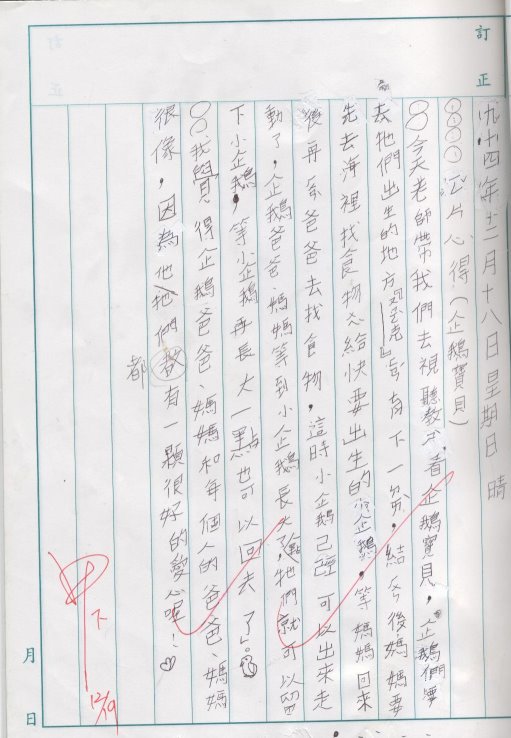 訂正
九十四年十二月十八日星期日 晴
〇〇〇〇影片心得(企鵝寶貝)
〇〇今天老師帶我們去視聽教室看企鵝寶貝,企鵝們要
去牠們出生的地方』下一,結後媽媽要
先去海裡找食物給快要出生的小企鵝,等媽媽回來
後再爸爸去找食物,這時小企鵝已經可以出來走
動了,企鵝爸爸、媽媽等到小企鵝長大點,牠們就可以留
下小企鵝,等小企鵝再長大一點也可以回去了。
〇〇我覺得企鵝爸爸、媽媽和每個人的爸爸、媽媽
很像,因為他牠們都有一顆很好的愛心喔!
都
中下
12/19
月 日